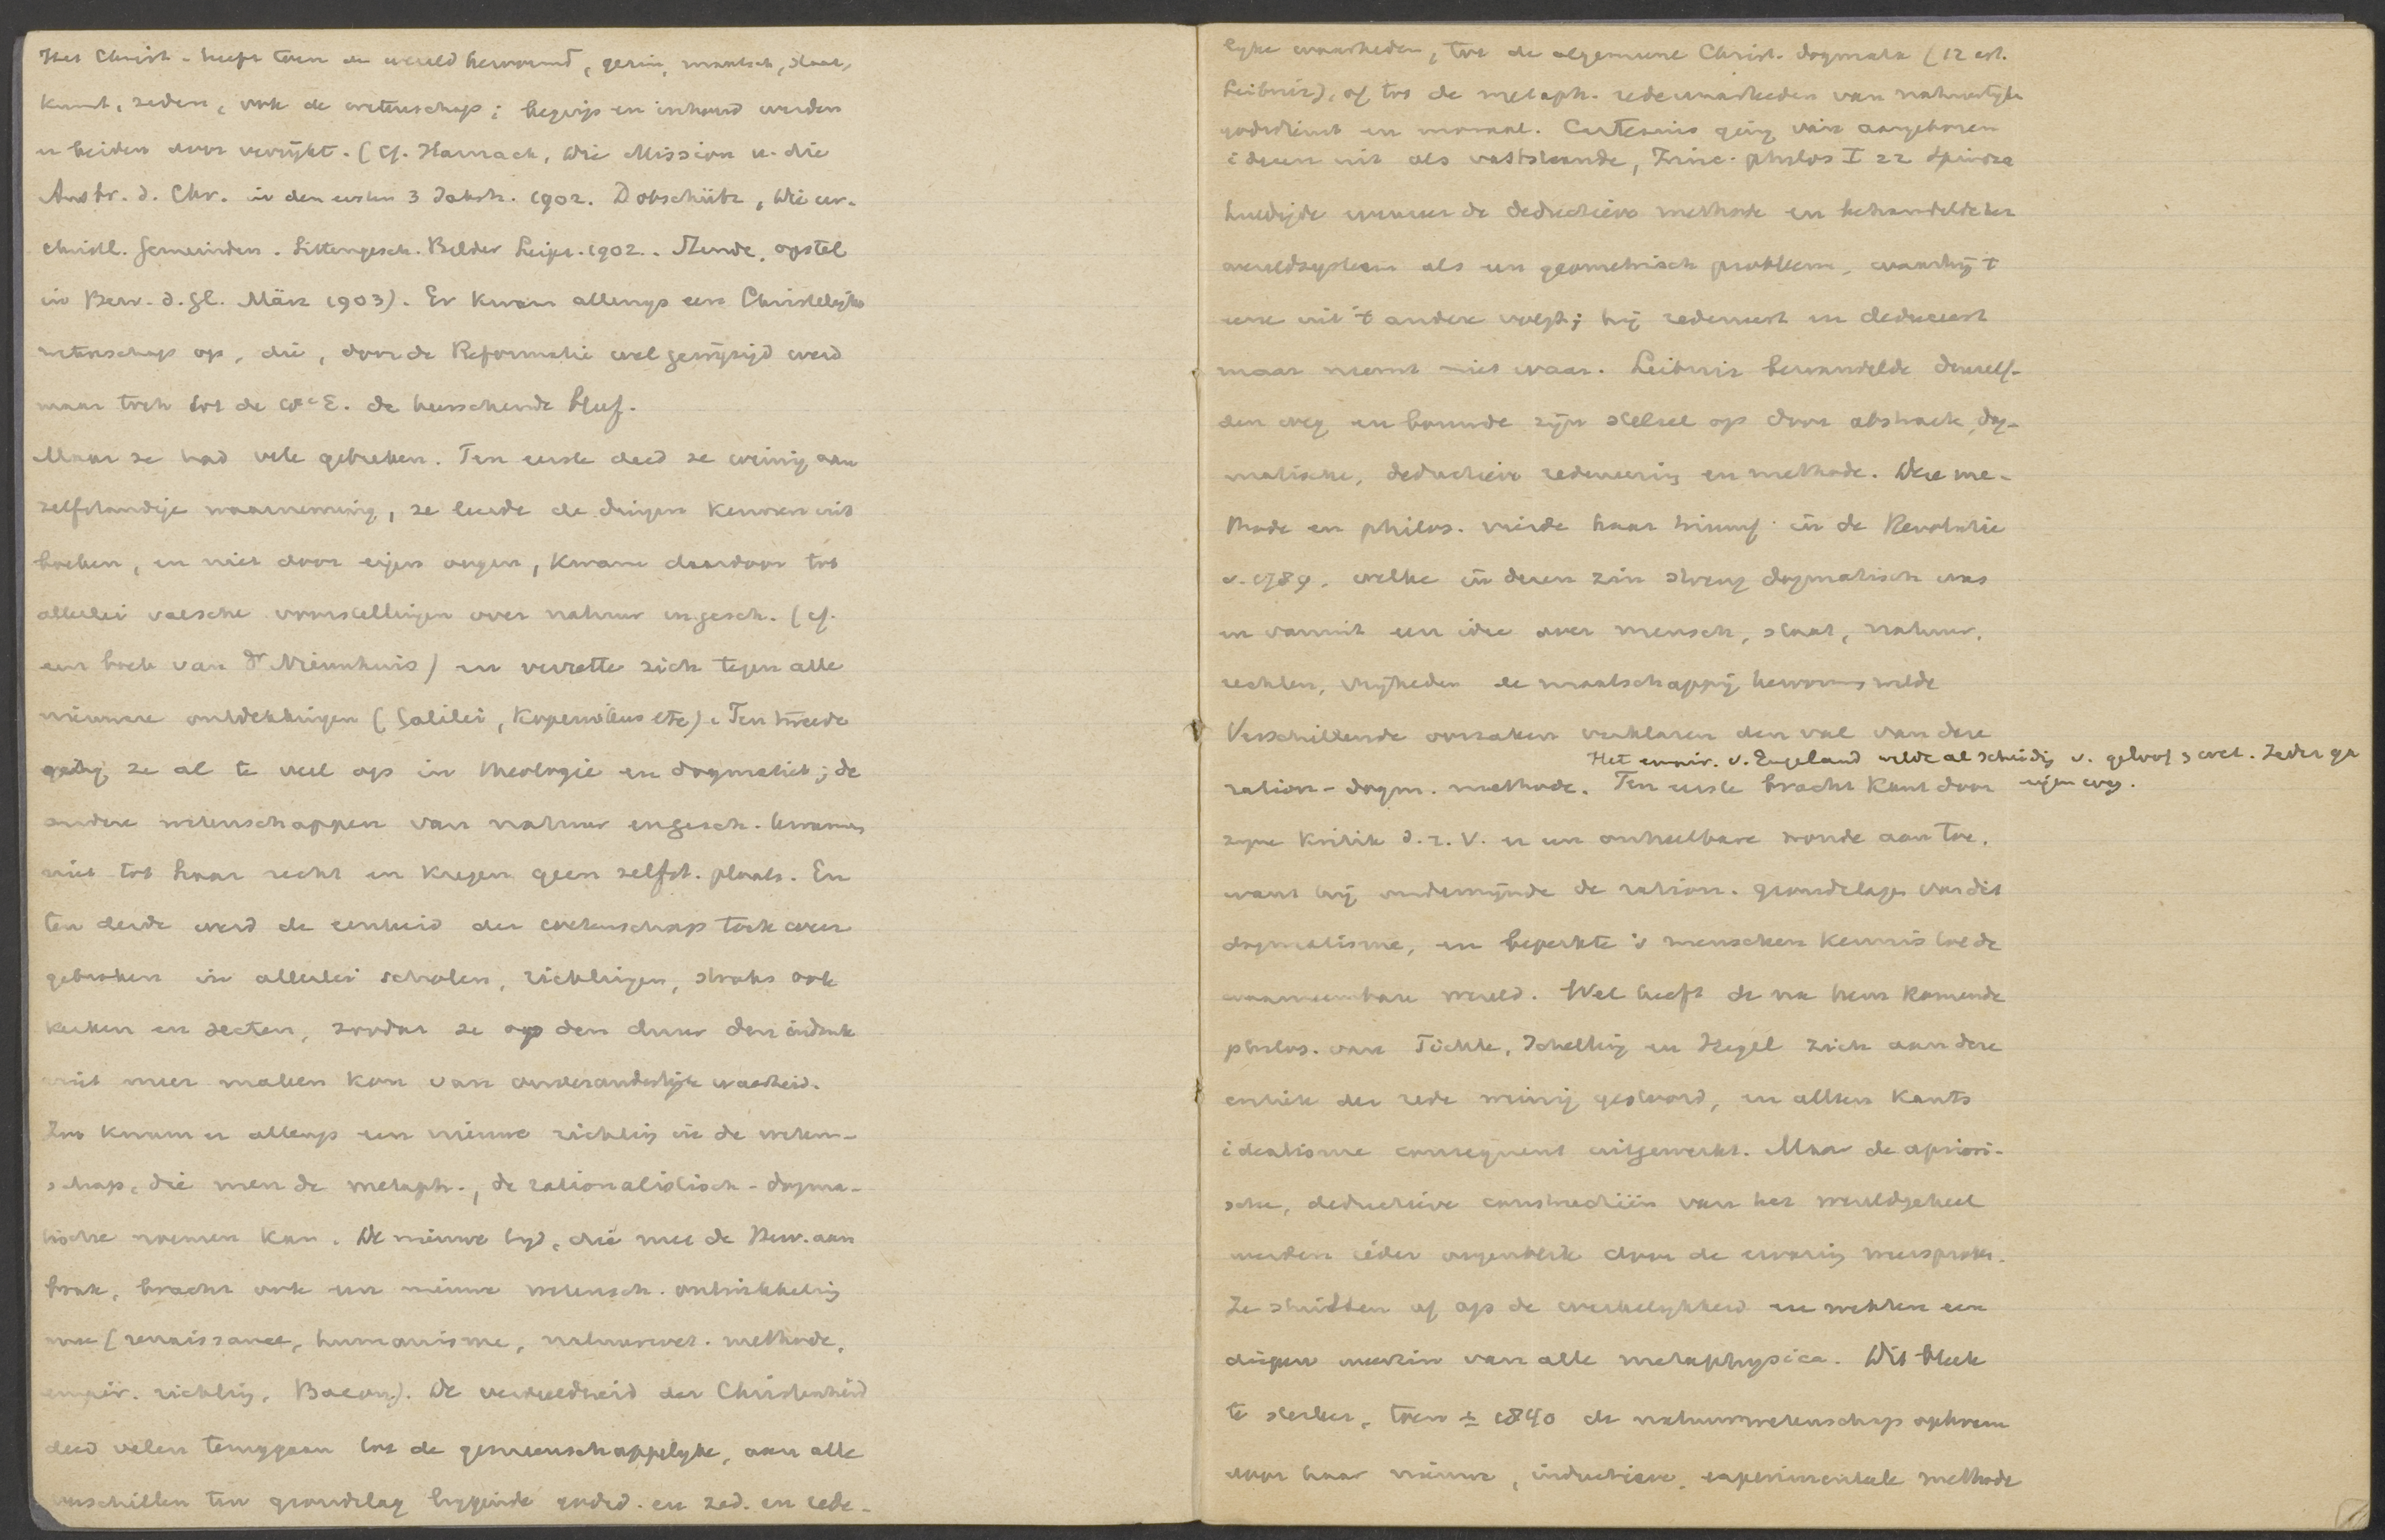 Het Christ. heeft toen de wereld hervormd, gezin, maatsch, staat,
kunst, zeden, ook de wetenschap; begrip en inhoud werden
er beiden door verrijkt. (cf. Harnack, Die Mission u. die
Ausbr. d. Chr. in den ersten 3 Jahrh. 1902. Dobschütz, Die ur-
christl. Gemeinden. Sittengesch. Bilder Leipz. 1902. opstel
in Bew. d. Gl. März 1903). Er kwam allengs een Christelijke
wetenschap op, die, door de Reformatie wel gewijzigd werd
maar toch tot de 18e E. de heerschende bleef.
Maar ze had vele gebreken. Ten eerste deed ze weinig aan
zelfstandige waarneming, ze leerde de dingen kennen uit
boeken, en niet door eigen oogen, kwam daardoor tot
allerlei valsche voorstellingen over natuur en gesch. (cf.
een boek van Dr Nieuwhuis) en verzette zich tegen alle
nieuwere ontdekkingen (Galilei, Kopernikus etc). Ten tweede
ging ze al te veel op in theologie en dogmatiek; de
andere wetenschappen van natuur en gesch. kwamen
niet tot haar recht en kregen geen zelfst. plaats. En
ten derde werd de eenheid der wetenschap toch weer
gebroken in allerlei scholen, richtingen, straks ook
kerken en secten, zoodat ze op den duur den indruk
niet meer maken kon van onveranderlijke waarheid.
Zoo kwam er allengs een nieuwe richting in de weten-
schap, die men de metaph., de rationalistisch-dogma-
tische noemen kan. De nieuwe tijd, die met de Ren. aan
brak, bracht ook een nieuwe wetensch. ontwikkeling
mee (renaissance, humanisme, natuurwet. methode,
empir. richting, Bacon). De verdeeldheid der Christenheid
deed velen teruggaan tot de gemeenschappelijke, aan alle
verschillen ten grondslag liggende godsd. en zed. en rede-
lijke waarheden, tot de algemeene Christ. dogmata (
Leibniz), of tot de metaph. redewaarheden van natuurlijke
godsdienst en moraal. Cartesius ging van aangeboren
ideeën uit als vaststaande, Princ. philos I 22 Spinoza
huldigde evenzeer de deductieve methode en behandelde het
wereldsysteem als een geometrisch probleem, waarbij 't
eene uit 't andere volgt; hij redeneert en deduceert
maar neemt niet waar. Leibniz bewandelde denzelf-
den weg en bouwde zijn stelsel op door abstracte, dog-
matische, deductieve redeneering en methode. Deze me-
thode en philos. vierde haar triumf in de Revolutie
v. 1789, welke in dezen zin streng dogmatisch was
en vanuit een idee over mensch, staat, natuur,
rechten, vrijheden de maatschappij hervormen wilde
Verschillende oorzaken verklaren den val van deze
Het empir. v. Engeland wilde al scheiding v. geloof & wet. Ieder ga
eigen weg.
ration-dogm. methode. Ten eerste bracht Kant door
zijne Kritik d. r. V. er een onheelbare wonde aan toe,
want hij ondermijnde de ration. grondslagen van dit
dogmatisme, en beperkte 's menschen kennis tot de
waarneembare wereld. Wel heeft de na hem komende
philos. van Fichte, Schelling en Hegel zich aan deze
critiek der rede weinig gestoord, en alleen Kants
idealisme consequent uitgewerkt. Maar de aprioris-
sche, deductieve constructiën van het wereldgeheel
werden ieder oogenblik door de ervaring weersproken.
Ze stuitten af op de werkelijkheid en wekten een
diepen weerzin van alle metaphysica. Dit bleek
te sterker, toen ± 1840 de natuurwetenschap opkwam
door haar nieuwe, inductieve, experimenteele methode